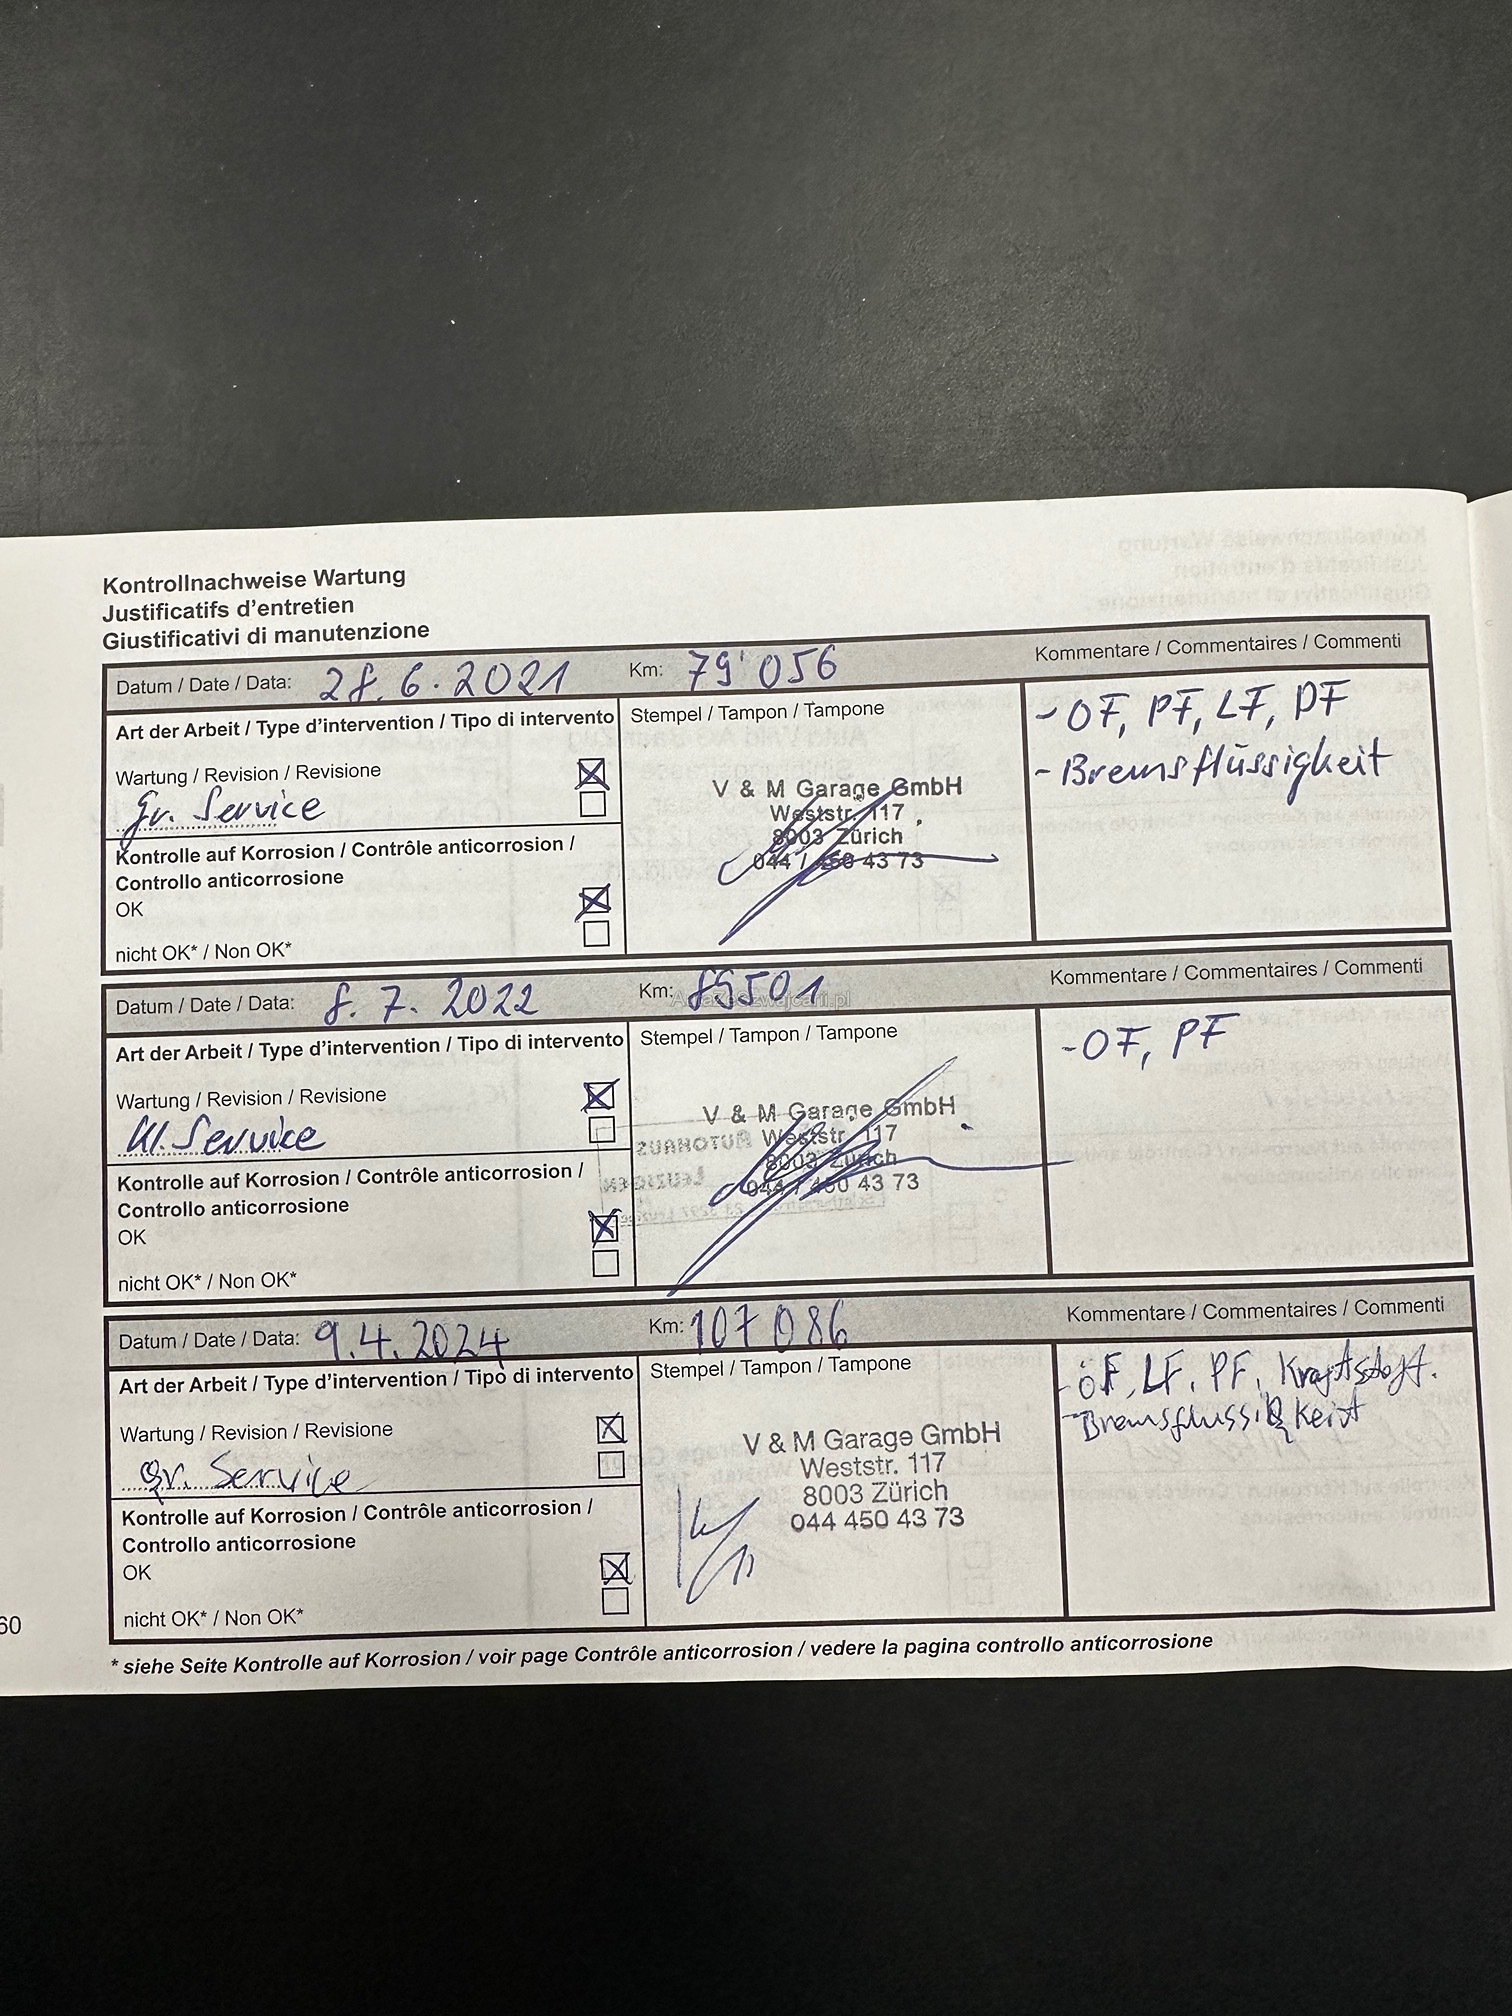 Kontrollnachweise Wartung
Justificatifs d'entretien
Giustificativi di manutenzione
Datum / Date / Data: 28.6.2021 Km: 79'056 Kommentare / Commentaires / Commenti
Art der Arbeit / Type d'intervention / Tipo di intervento Stempel / Tampon / Tampone
- OF, PF, LF, DF
- Bremsflüssigkeit
Wartung / Revision / Revisione
gr. Service
V & M Garage GmbH
Weststr. 117
8003 Zürich
044 / 450 43 73
Kontrolle auf Korrosion / Contrôle anticorrosion /
Controllo anticorrosione
OK
nicht OK* / Non OK*
Datum / Date / Data: 8.7.2022 Km: 89501 Kommentare / Commentaires / Commenti
AutaZeSzwajcarii.pl
Art der Arbeit / Type d'intervention / Tipo di intervento Stempel / Tampon / Tampone
- OF, PF
Wartung / Revision / Revisione
kl. Service
V & M Garage GmbH
Weststr. 117
8003 Zürich
044 / 450 43 73
Kontrolle auf Korrosion / Contrôle anticorrosion /
Controllo anticorrosione
OK
nicht OK* / Non OK*
Datum / Date / Data: 9.4.2024 Km: 107086 Kommentare / Commentaires / Commenti
Art der Arbeit / Type d'intervention / Tipo di intervento Stempel / Tampon / Tampone
- ÖF, LF, PF, Kraftstoff.
- Bremsflussigkeit
Wartung / Revision / Revisione
gr. Service
V & M Garage GmbH
Weststr. 117
8003 Zürich
044 450 43 73
Kontrolle auf Korrosion / Contrôle anticorrosion /
Controllo anticorrosione
OK
nicht OK* / Non OK*
60
* siehe Seite Kontrolle auf Korrosion / voir page Contrôle anticorrosion / vedere la pagina controllo anticorrosione